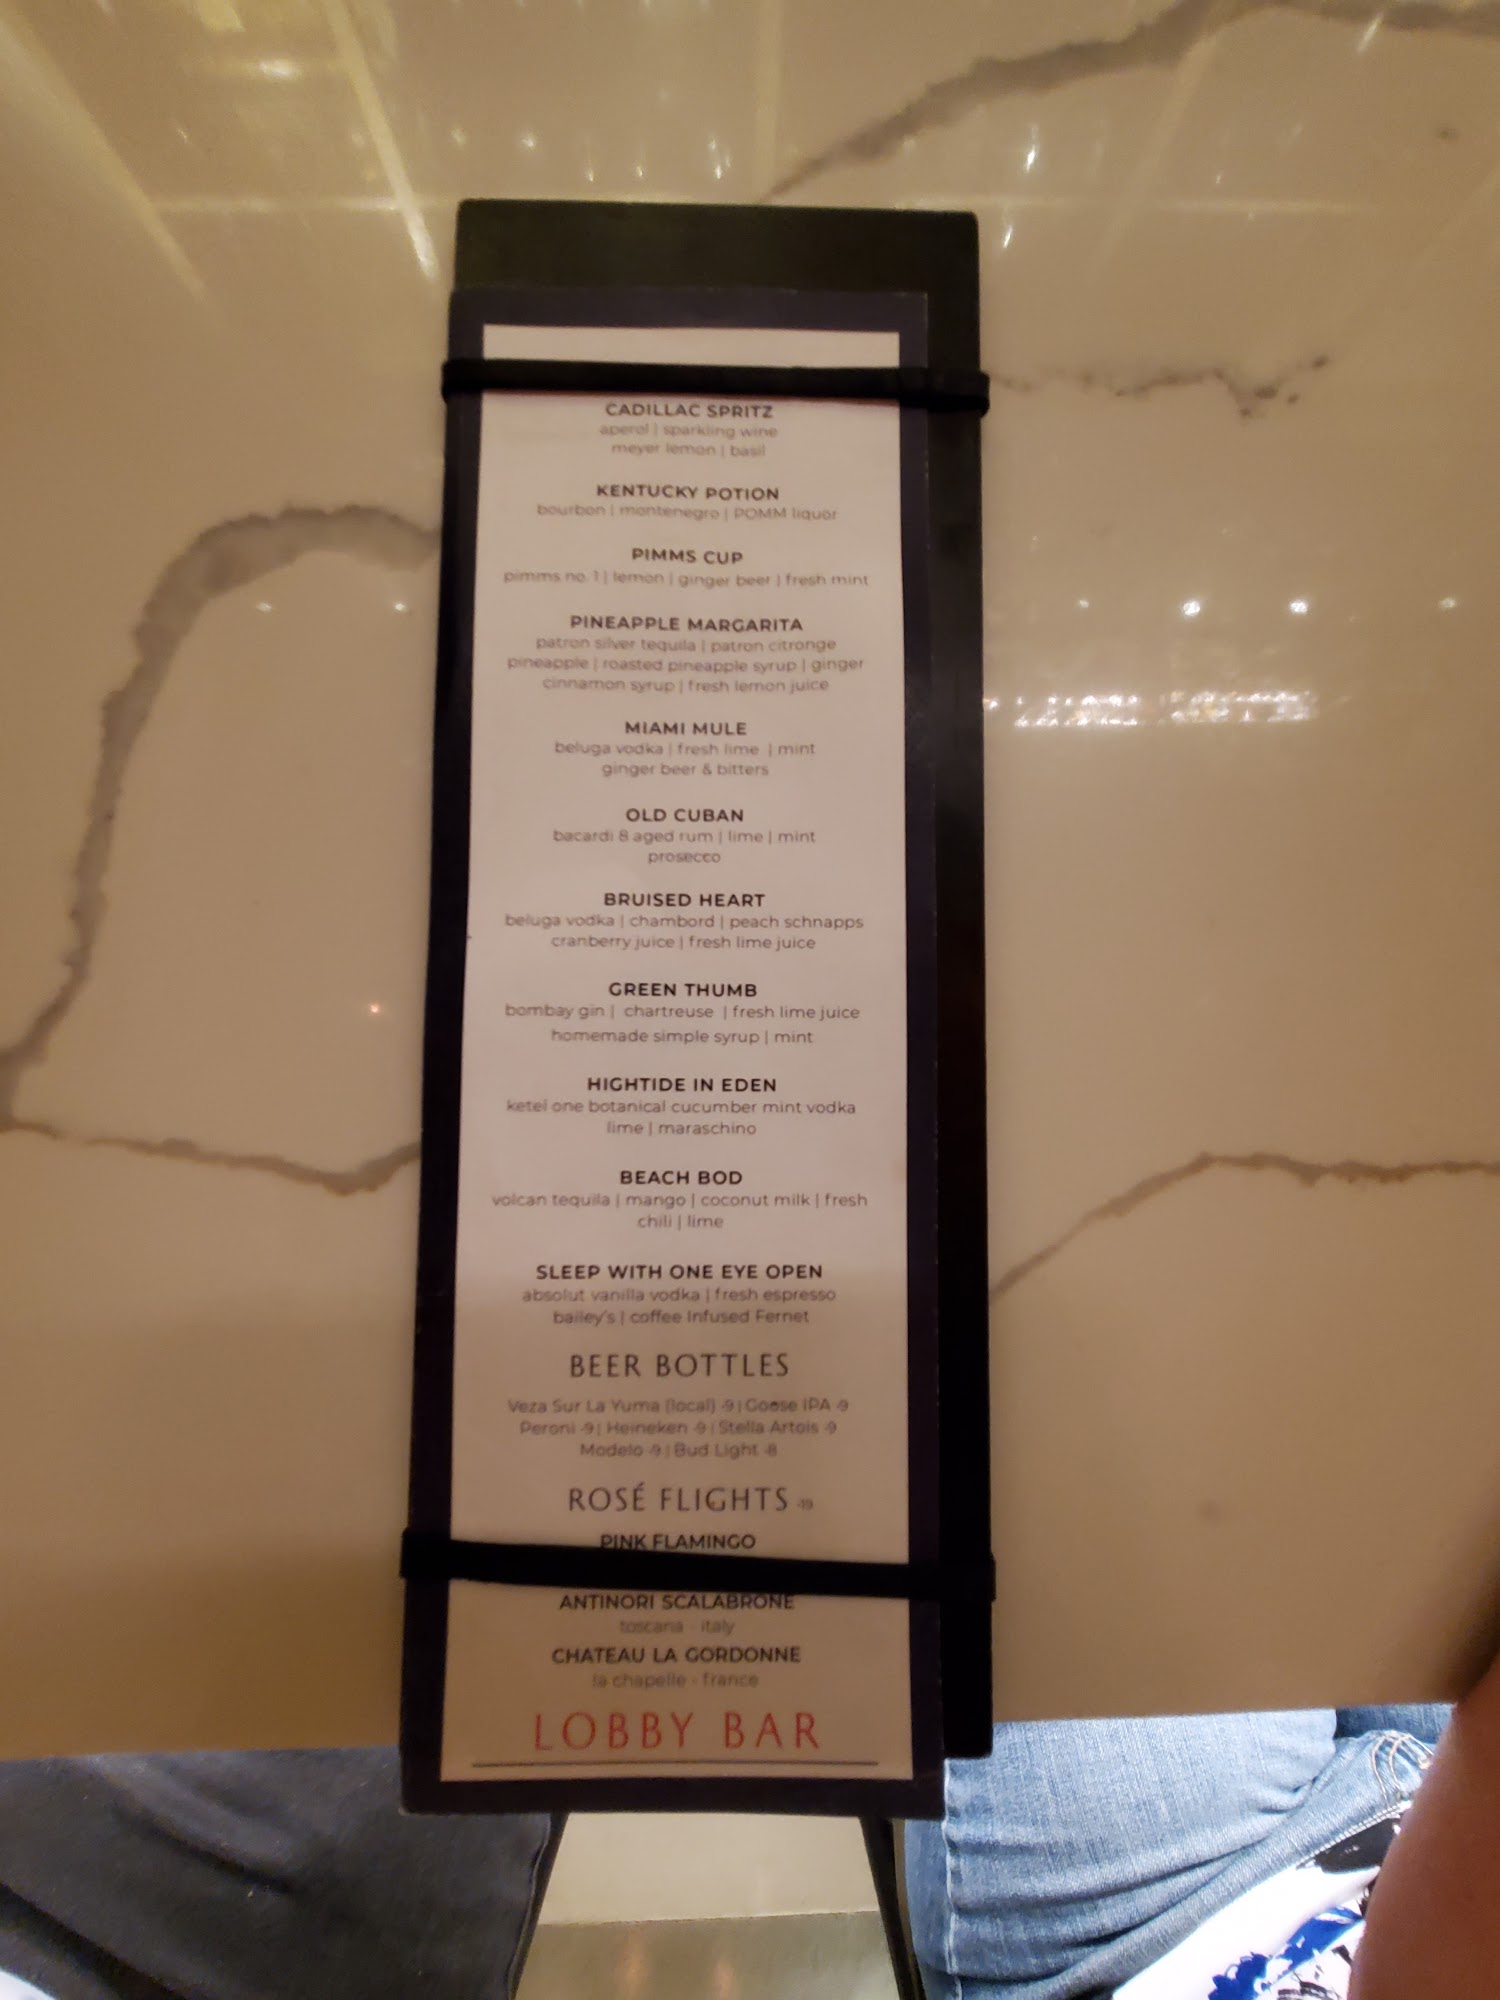 CADILLAC SPRITZ
aperol | sparkling wine
meyer lemon | basil
KENTUCKY POTION
bourbon | montenegro | POMM liquor
PIMMS CUP
pimms no. 1 | lemon | ginger beer | fresh mint
PINEAPPLE MARGARITA
patron silver tequila | patron citronge
pineapple | roasted pineapple syrup | ginger
cinnamon syrup | fresh lemon juice
MIAMI MULE
beluga vodka | fresh lime | mint
ginger beer & bitters
OLD CUBAN
bacardi 8 aged rum | lime | mint
prosecco
BRUISED HEART
beluga vodka | chambord | peach schnapps
cranberry juice | fresh lime juice
GREEN THUMB
bombay gin | chartreuse | fresh lime juice
homemade simple syrup | mint
HIGHTIDE IN EDEN
ketel one botanical cucumber mint vodka
lime | maraschino
BEACH BOD
volcan tequila | mango | coconut milk | fresh
chili | lime
SLEEP WITH ONE EYE OPEN
absolut vanilla vodka | fresh espresso
bailey's | coffee Infused Fernet
BEER BOTTLES
Veza Sur La Yuma (local) -9 | Goose IPA -9
Peroni -9 | Heineken -9 | Stella Artois -9
Modelo -9 | Bud Light -8
ROSÉ FLIGHTS -19
PINK FLAMINGO
ANTINORI SCALABRONE
toscana - italy
CHATEAU LA GORDONNE
la chapelle - france
LOBBY BAR